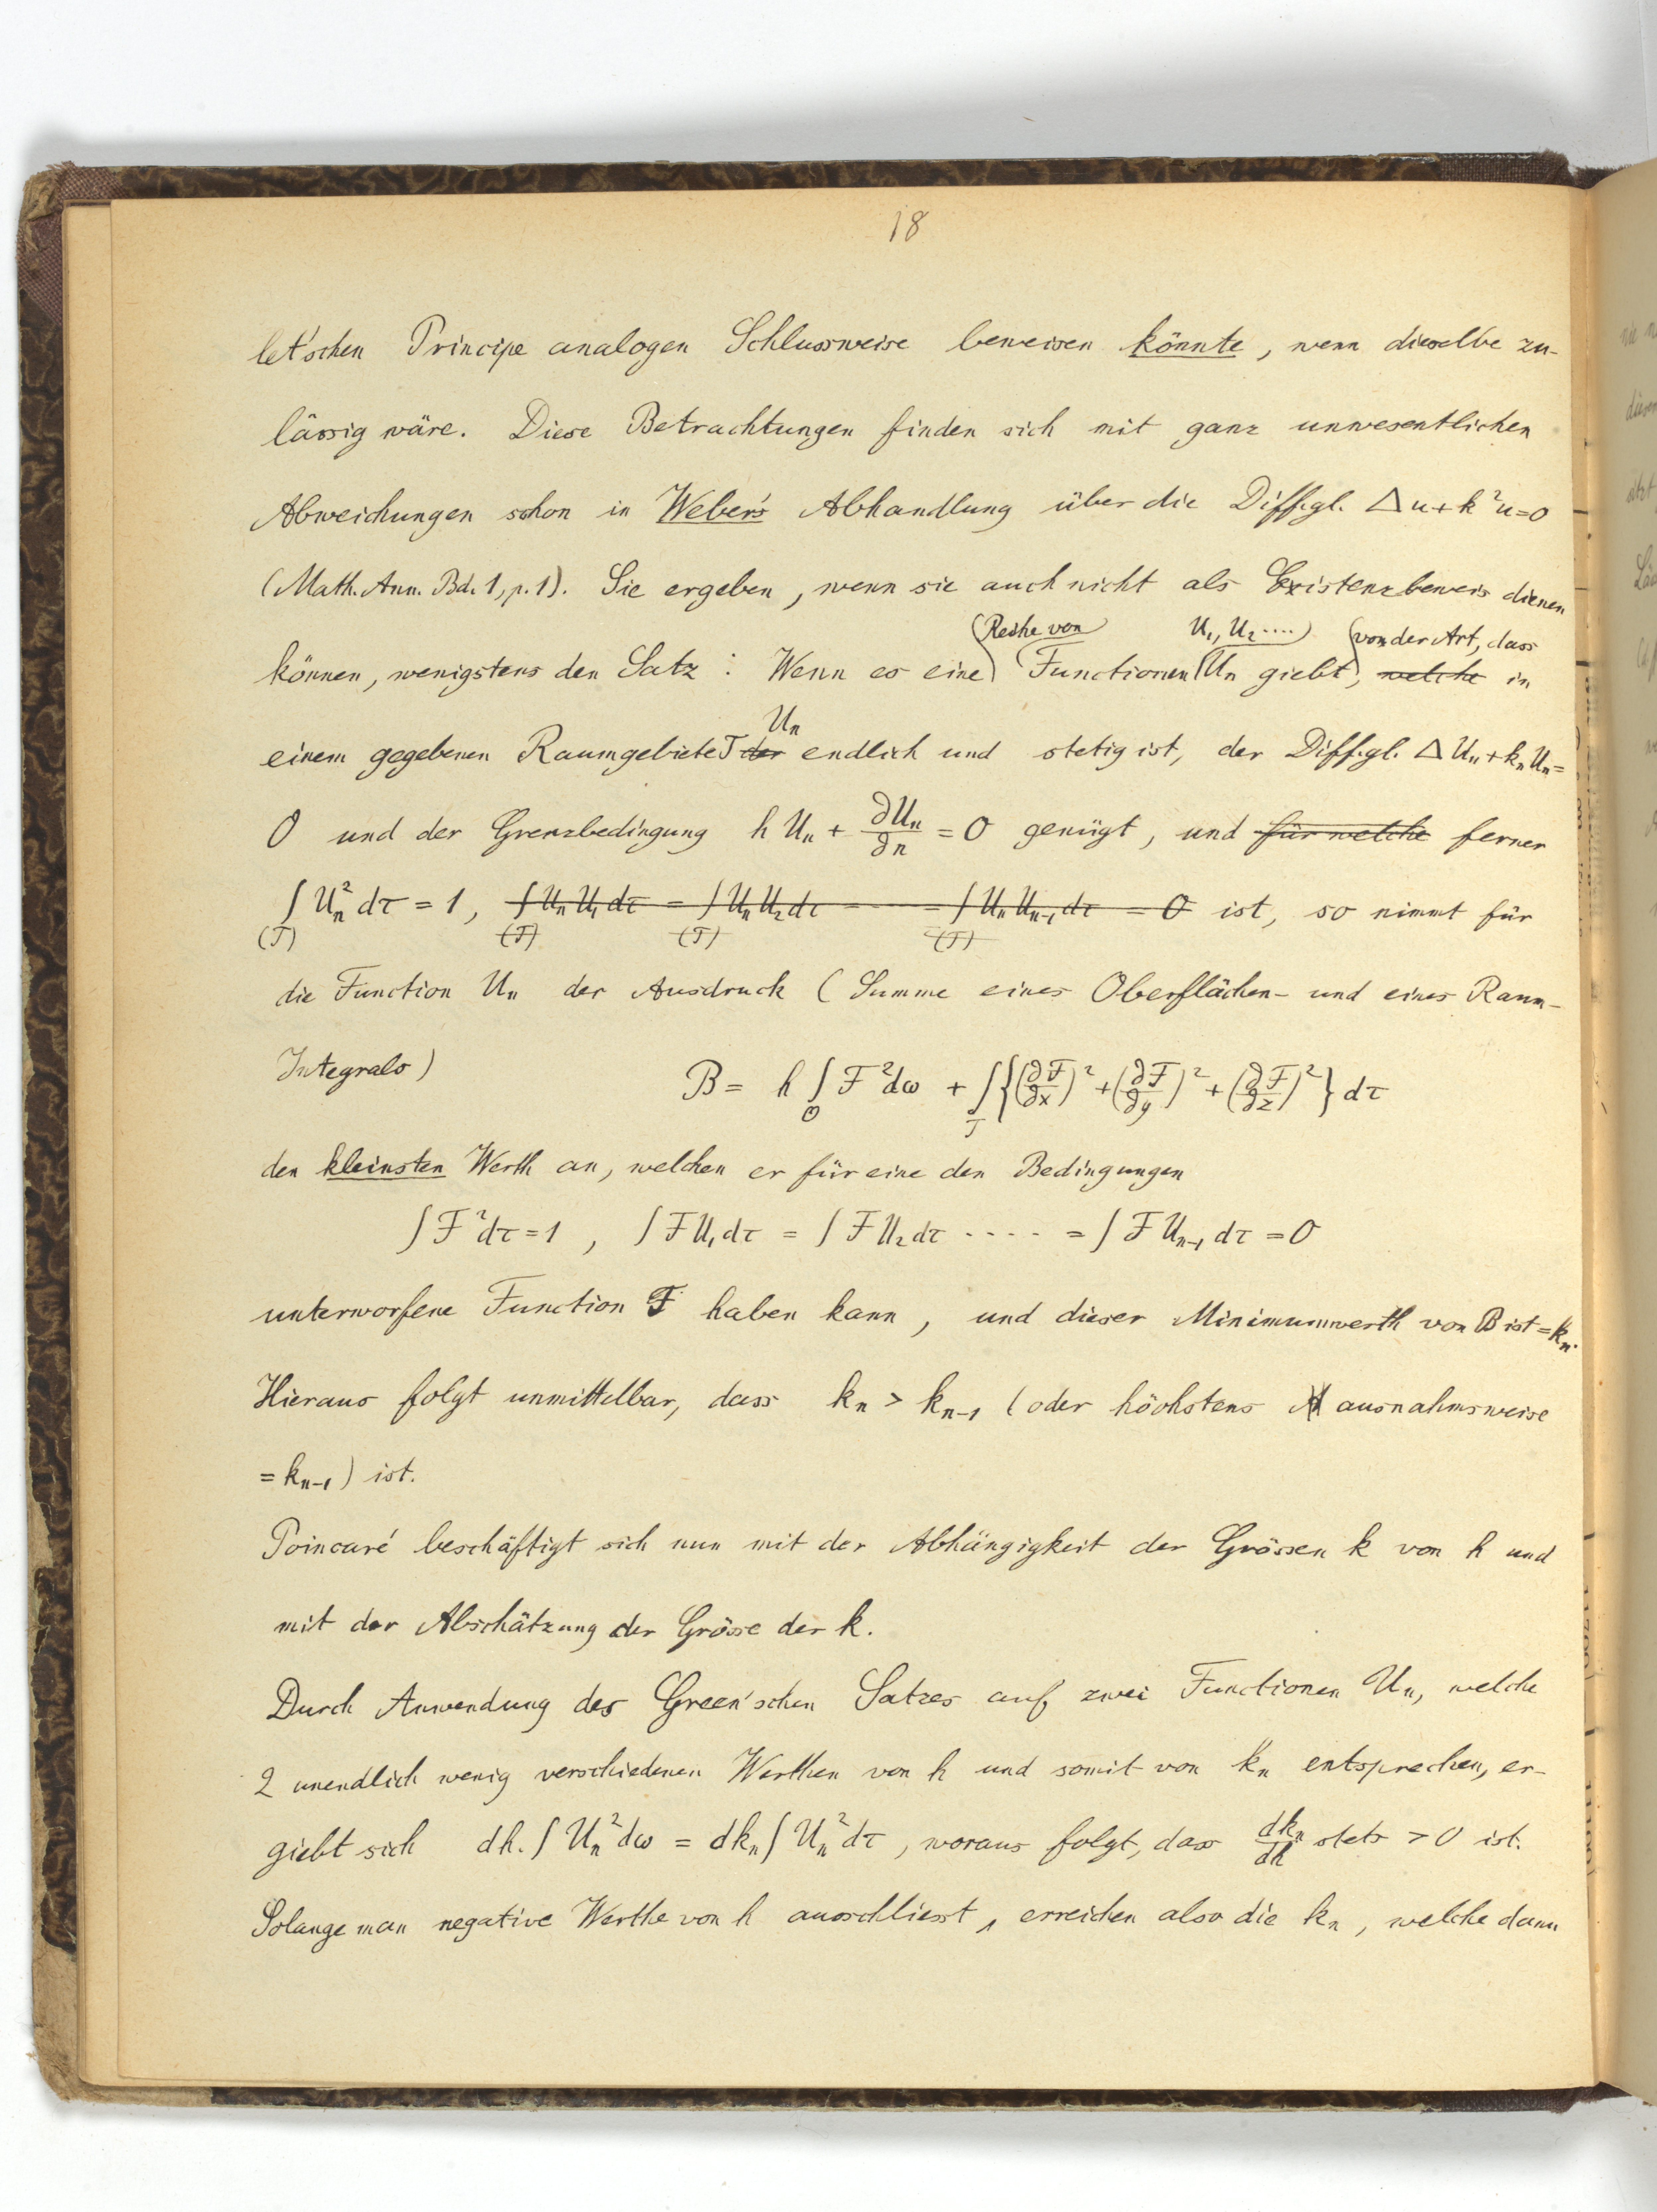 18
let'schen Principe analogen Schlussweise beweisen könnte, wenn dieselbe zu-
lässig wäre. Diese Betrachtungen finden sich mit ganz unwesentlichen
Abweichungen schon in Weber's Abhandlung über die Diff.gl. Δu+k²u=0
(Math. Ann. Bd. 1, p. 1). Sie ergeben, wenn sie auch nicht als Existenzbeweis dienen
(Reihe von U₁, U₂ ....) (von der Art, dass
können, wenigstens den Satz: Wenn es eine Functionen Uₙ giebt, welche in
Uₙ
einem gegebenen Raumgebiete T der endlich und stetig ist, der Diff.gl. ΔUₙ+kₙUₙ=
0 und der Grenzbedingung hUₙ + ∂Uₙ/∂n = 0 genügt, und für welche ferner
∫(T) Uₙ² dτ = 1, ∫(T) UₙU₁dτ = ∫(T) UₙU₂dτ ---- = ∫(T) UₙUₙ₋₁dτ = 0 ist, so nimmt für
die Function Uₙ der Ausdruck (Summe eines Oberflächen- und eines Raum-
Integrals) B = h ∫O F²dω + ∫T {(∂F/∂x)² + (∂F/∂y)² + (∂F/∂z)²} dτ
den kleinsten Werth an, welchen er für eine den Bedingungen
∫F²dτ = 1, ∫FU₁dτ = ∫FU₂dτ ..... = ∫FUₙ₋₁dτ = 0
unterworfene Function F haben kann, und dieser Minimumwerth von B ist = kₙ.
Hieraus folgt unmittelbar, dass kₙ > kₙ₋₁ (oder höchstens ausnahmsweise
= kₙ₋₁) ist.
Poincaré beschäftigt sich nun mit der Abhängigkeit der Grössen k von h und
mit der Abschätzung der Grösse der k.
Durch Anwendung des Green'schen Satzes auf zwei Functionen Uₙ, welche
2 unendlich wenig verschiedenen Werthen von h und somit von kₙ entsprechen, er-
giebt sich dh.∫Uₙ²dω = dkₙ∫Uₙ²dτ, woraus folgt, dass dkₙ/dh stets > 0 ist.
Solange man negative Werthe von h ausschliesst, erreichen also die kₙ, welche dann